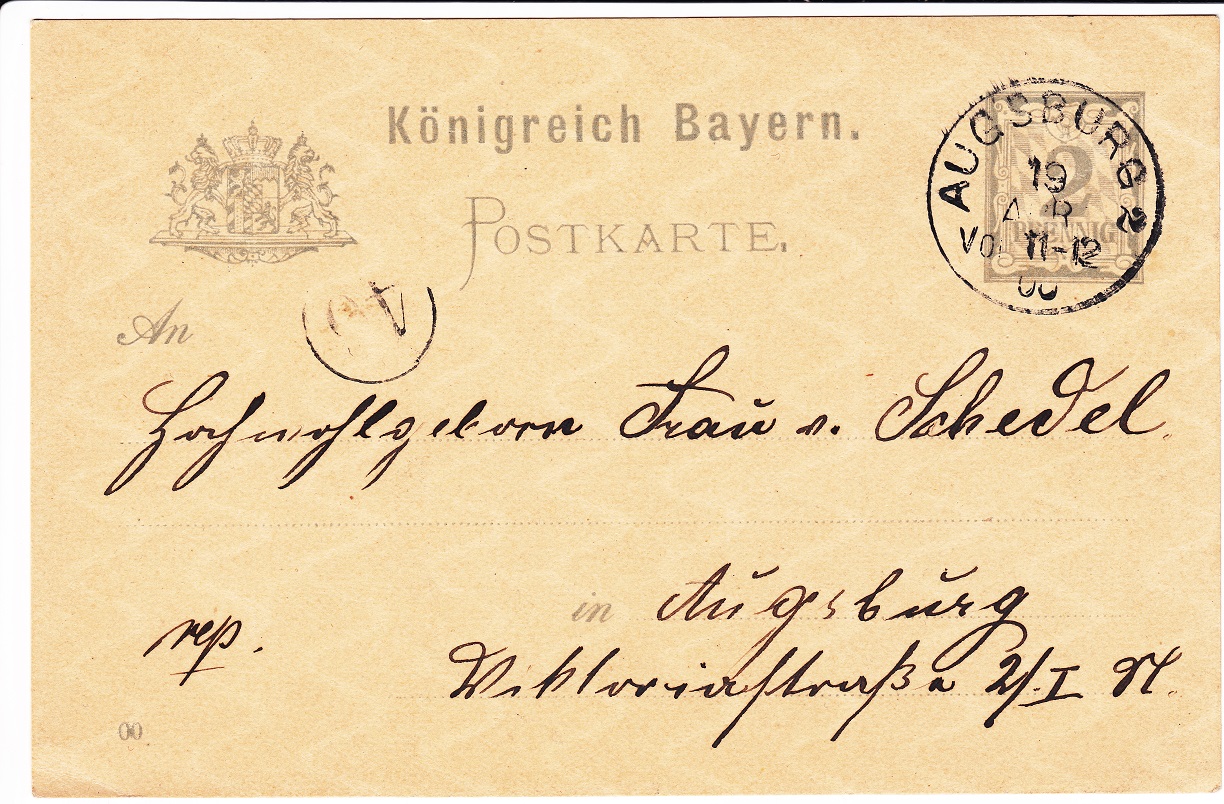 Königreich Bayern.
POSTKARTE.
AUGSBURG 2
19
APR
VOR 11-12
00
2
PFENNIG
An
Hochwohlgeborn Frau v. Schedel.
in Augsburg
rep.
Viktoriastraße 2/I St.
00